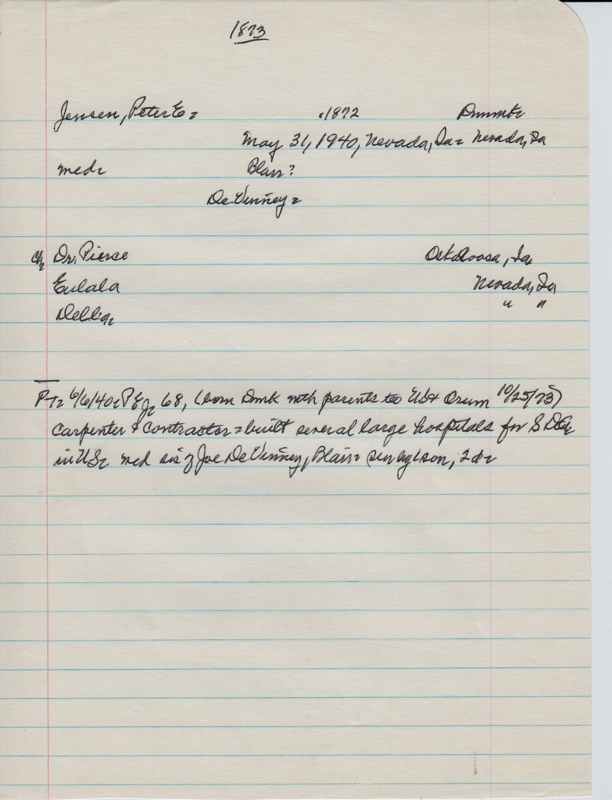 1873
Jensen, Peter E= c1872 Dnmk=
May 31, 1940, Nevada, Ia= Nevada, Ia
med= Blair?
DeVinney=
Ch= Dr. Pierse Oskaloosa, Ia
Eulala Nevada, Ia
Della= " "
PT= 6/6/40= PEJ= 68, (born Dmk with parents to US+ Orum 10/25/73)
Carpenter + contractor= built several large hospitals for SDA=
in US= med sis of Joe DeVinney, Blair= surv by 1 son, 2 d=